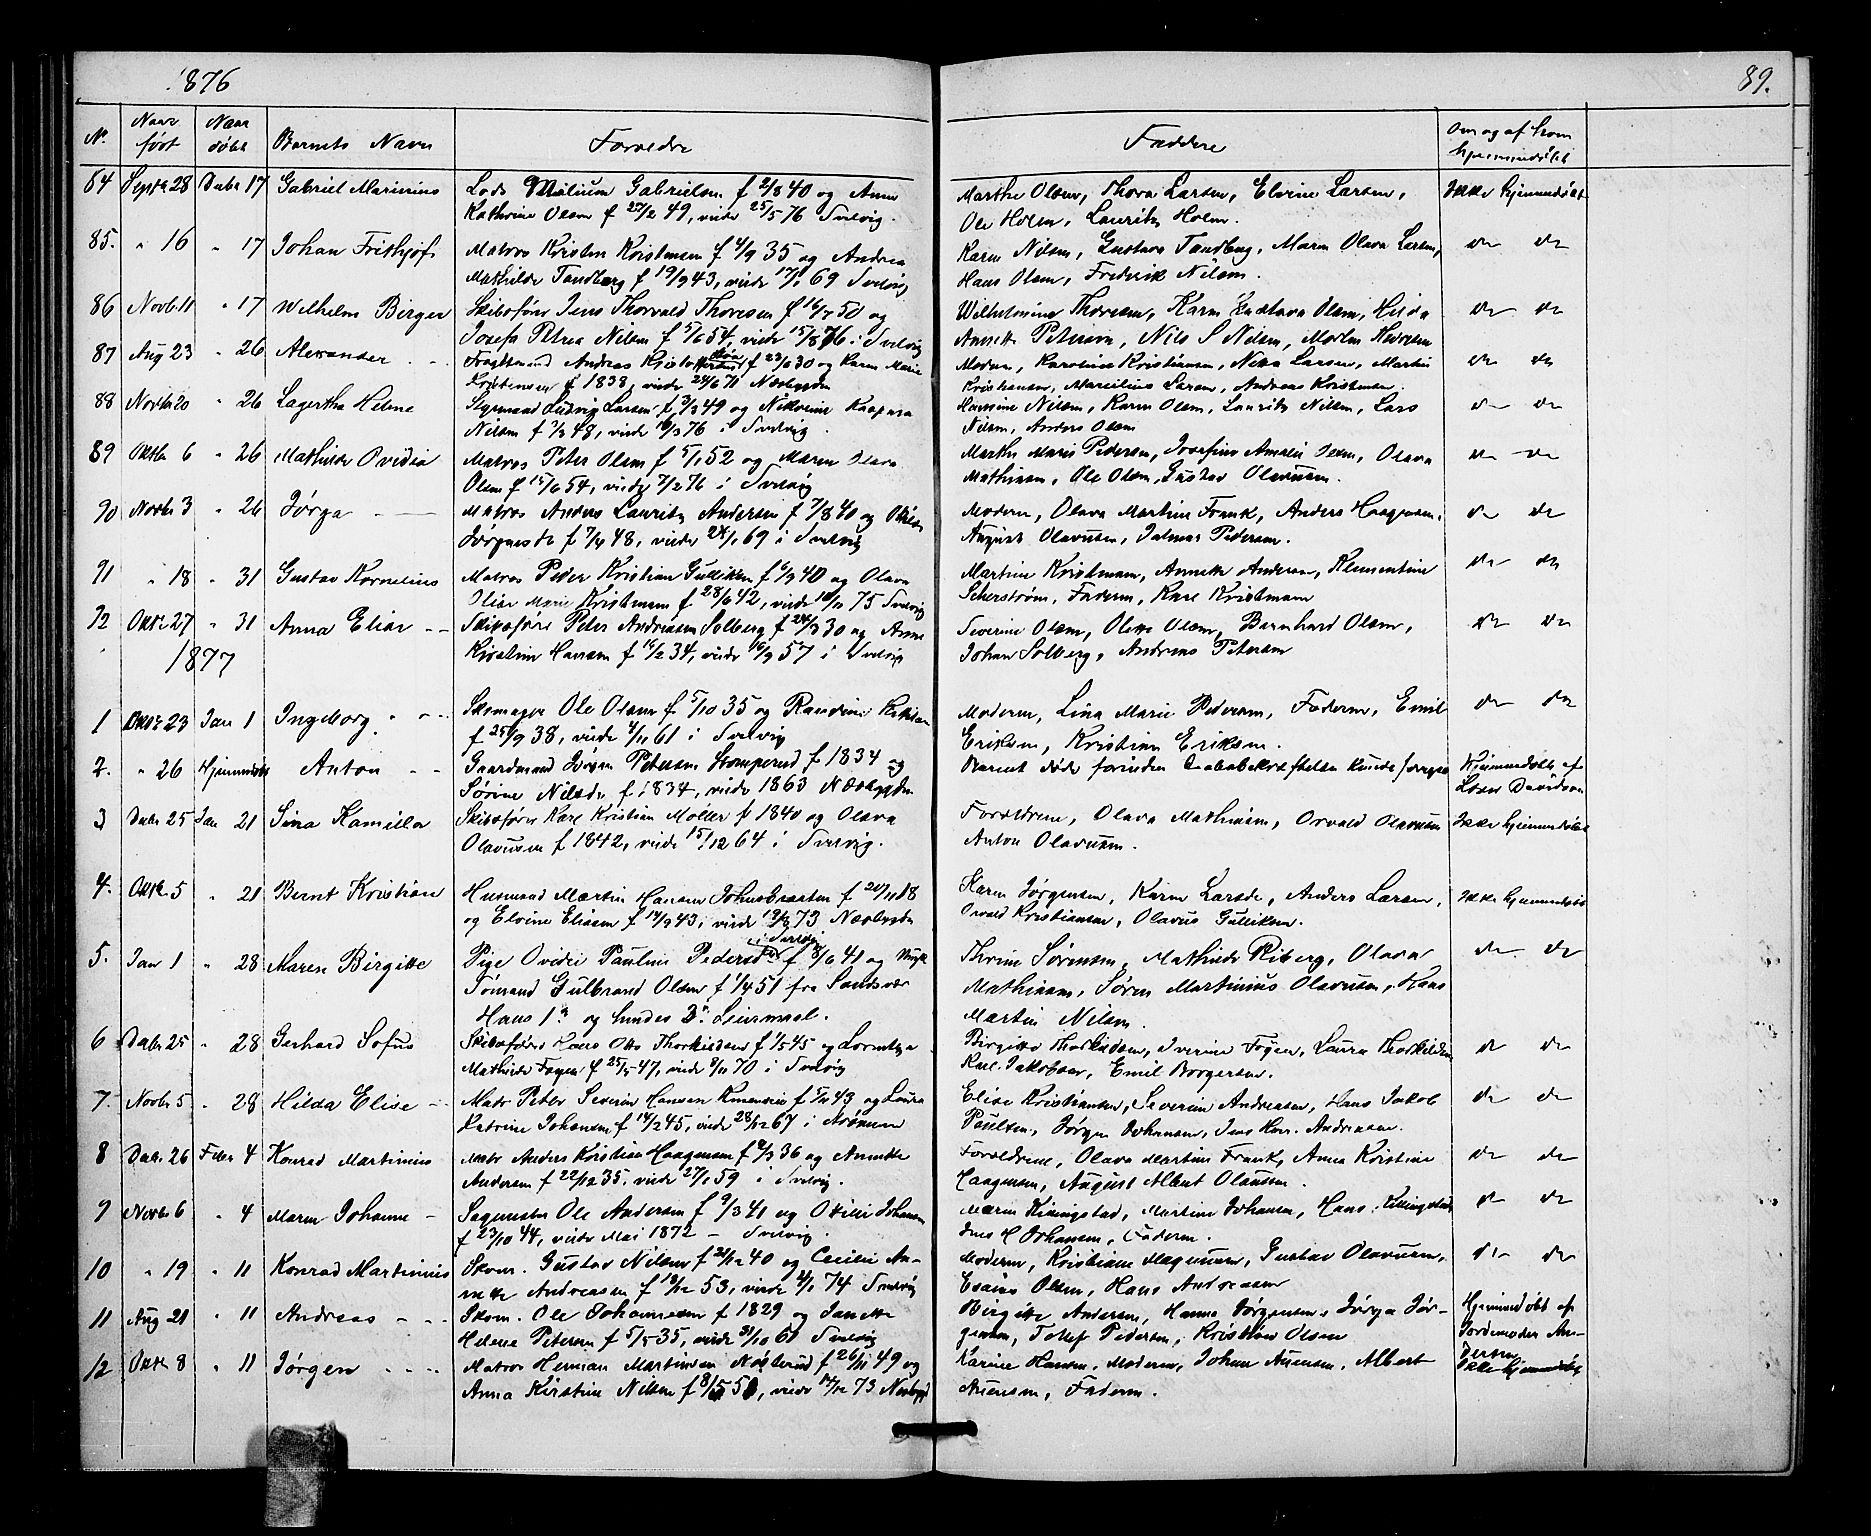 1876
89.
No. Naar født Naar døbt Barnets Navn Forældre Faddere Om og af hvem hjemmedøbt
84 Septbr 28 Decbr 17 Gabriel Marinius Lods Gabrielsen f 2/8 40 og Anne Marthe Olsen, Thora Larsen, Elvine Larsen, Ikke hjemmedøbt
Kathrine Olsen f 27/2 49, viede 25/5 76 Svelvig. Ole Holm, Lauritz Holm.
85. " 16 " 17 Johan Frithjof Matros Kristen Kristensen f 4/9 35 og Andrea Karen Nilsen, Gustava Tandberg, Maren Olava Larsen, do do
Mathilde Tandberg f 19/9 43, viede 17/1 69 Svelvig Hans Olsen, Frederik Nilsen.
86 Novb 11 " 17 Wilhelm Birger Skibsfører Jens Thorvald Thoresen f 16/7 50 og Wilhelmine Thoresen, Karen Gustava Olsen, Hilda do do
Josefa Petrea Nilsen f 5/6 54, viede 15/8 76 i Svelvig Annette Petersen, Nils S Nilsen, Morten
87 Aug 23 " 26 Alexander Andreas f 23/10 30 og Karen Marie Moderen, Karoline Kristiansen, Netta Larsen, Martin do do
Kristensen f 1838, viede 24/6 71 Nesbygden Kristiansen, Marcelius Larsen, Andreas Kristensen.
88 Novbr 20 " 26 Lagertha Helene Styrmand Ludvig Larsen f 3/3 49 og Kaspara Hansine Nilsen, Karen Olsen, Lauritz Nilsen, Lars do do
Nilsen f 7/3 48, viede 16/3 76 i Svelvig. Nilsen, Anders Olsen
89 Oktbr 6 " 26 Mathilde Ovidia Matros Peter Olsen f 5/1 52 og Maren Olava Marthe Marie Pedersen, Josefine Amalie Olsen, Olava do do
Olsen f 15/6 54, viede 7/2 76 i Svelvig Mathisen, Ole Olsen, Gustav Olavusen.
90 Novbr 3 " 26 Jørga Matros Anders Lauritz Andersen f 7/8 40 og Moderen, Olava Martine Frank, Anders Haagensen, do do
f 7/4 48, viede 24/1 69 i Svelvig August Olavusen, Pedersen.
91 " 18 " 31 Gustav Kornelius Matros Peder Kristian Gulliksen f 6/9 40 og Olava Martine Kristensen, Annette Andersen, Klementine do do
Marie Kristensen f 28/6 42, viede 75 Svelvig Faderen, Karl Kristensen
92 Oktbr 27 " 31 Anna Elise Skibsfører Peter Andreasen Solberg f 24/3 30 og Anne Severine Olsen, Olette Olsen, Bernhard Olsen, do do
Kirstine Hansen f 16/2 34, viede 16/9 57 i Svelvig Johan Solberg, Andreas Petersen
1877
1 23 Jan 1 Ingeborg Skomager Ole Olsen f 5/10 35 og Moderen, Lina Marie Pedersen, Faderen, Emil do do
f 25/9 38, viede 4/11 61 i Svelvig Eriksen, Kristian Eriksen.
2. " 26 Hjemmedøbt Anton Gaardmand Jørgen Petersen f 1834 og Barnet døde forinden Hjemmedøbt af
Sørine f 1834, viede 1863 Nesbygden Davidsen
3 Decbr 25 Jan 21 Sina Kamilla Skibsfører Karl Kristian Møller f 1840 og Olava Forældrene, Olava Mathisen, Osvald Olavusen Ikke hjemmedøbt
Olavusen f 1842, viede 15/12 64 i Svelvig. Anton Olavusen.
4. Oktbr 5 " 21 Bernt Kristian Husmand Martin Hansen f 20/11 18 Karen Jørgensen, Karen Anders Larsen, Ikke hjemmedøbt
og Elvine Eliasen f 14/9 43, viede 73 Nesbygden Osvald Kristiansen, Olavus Gulliksen.
i Svelvig
5. Jan 1 " 28 Maren Birgitte Pige Ovidie Pauline f 8/6 41 og Thrine Sørensen, Mathilde Riberg, Olava do do
Tømmand Gulbrand Olsen f 1/4 51 fra Sandsvær Mathisen, Søren Martinius Olavusen, Hans
Hans 1ste og hendes 2. Leiermaal. Martin Nilsen.
6 Decbr 25 " 28 Gerhard Sofus Skibsfører Hans Otto Thorkildsen f 1/5 45 og Birgitte Thorkildsen, Severine Fogen, Laura Thorkildsen do do
Mathilde f 25/5 47, viede 8/11 70 i Svelvig Karl Jakobsen, Emil Borgersen.
7. Novbr 5 " 28 Hilda Elise Matr Peter Severin Hansen f 5/11 43 og Laura Elise Kristiansen, Severin Andreasen, Hans Jakob do do
Katrine Johansen f 14/2 45, viede 28/12 67 i Paulsen, Jørgen Johansen, Jens Andreasen.
8 Decbr 26 Febr 4 Konrad Martinius Matr Anders Kristian Haagensen f 36 og Annette Forældrene, Olava Martine Frank, Anna Kristine do do
Andersen f 22/12 35, viede 27/1 59 i Svelvig. Haagensen, August Albert Olausen.
9 Novbr 6 " 4 Maren Johanne Ole Andersen f 9/3 41 og Johansen Maren Killingstad, Martine Johansen, Hans Killingstad do do
f 23/10 44, viede Mai 1872 - Svelvig. Jens H Johansen, Faderen.
10 " 19 " 11 Konrad Martinius Skom. Gustav Nilsen f 40 og Cecilie An- Moderen, Kristiane Magnusen, Gustav Olavusen, do do
nette Andreasen f 53, viede 74 Svelvig Esaias Olsen, Hans Andreasen
11 Aug 21 " 11 Andreas Skom. Ole Johannesen f 1829 og Janette Birgitte Andersen, Hanna Jørgensen, Jørga Jør- Hjemmedøbt af
Helene Petersen f 5/5 35, viede 31/10 61 Svelvig gensen, Tollef Pedersen, Kristian Olsen Jordemoder An-
dersen
12 Oktbr 8 " 11 Jørgen Matros Herman Martinsen f 26/11 49 og Karine Hansen, Moderen, Johan Albert Ikke hjemmedøbt
Anna Kirstine Nilsen f 8/5 51, viede 73 Nesbygd Faderen.